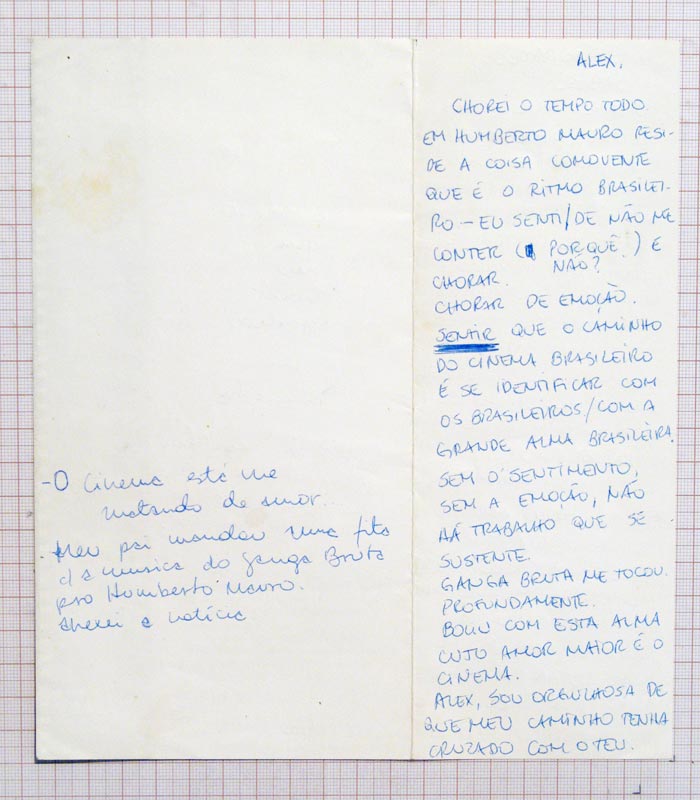 - O cinema está me
matando de amor.
. Meu pai mandou uma fita
da musica do ganga Bruta
pro Humberto Mauro.
a notícia
ALEX,
CHOREI O TEMPO TODO
EM HUMBERTO MAURO RESI-
DE A COISA COMOVENTE
QUE É O RITMO BRASILEI-
RO - EU SENTI/DE NÃO ME
CONTER ( POR QUÊ ) E
NÃO?
CHORAR.
CHORAR DE EMOÇÃO.
SENTIR QUE O CAMINHO
DO CINEMA BRASILEIRO
É SE IDENTIFICAR COM
OS BRASILEIROS/COM A
GRANDE ALMA BRASILEIRA.
SEM O SENTIMENTO,
SEM A EMOÇÃO, NÃO
HÁ TRABALHO QUE SE
SUSTENTE.
GANGA BRUTA ME TOCOU.
PROFUNDAMENTE.
BOLIU COM ESTA ALMA
CUJO AMOR MAIOR É O
CINEMA.
ALEX, SOU ORGULHOSA DE
QUE MEU CAMINHO TENHA
CRUZADO COM O TEU.